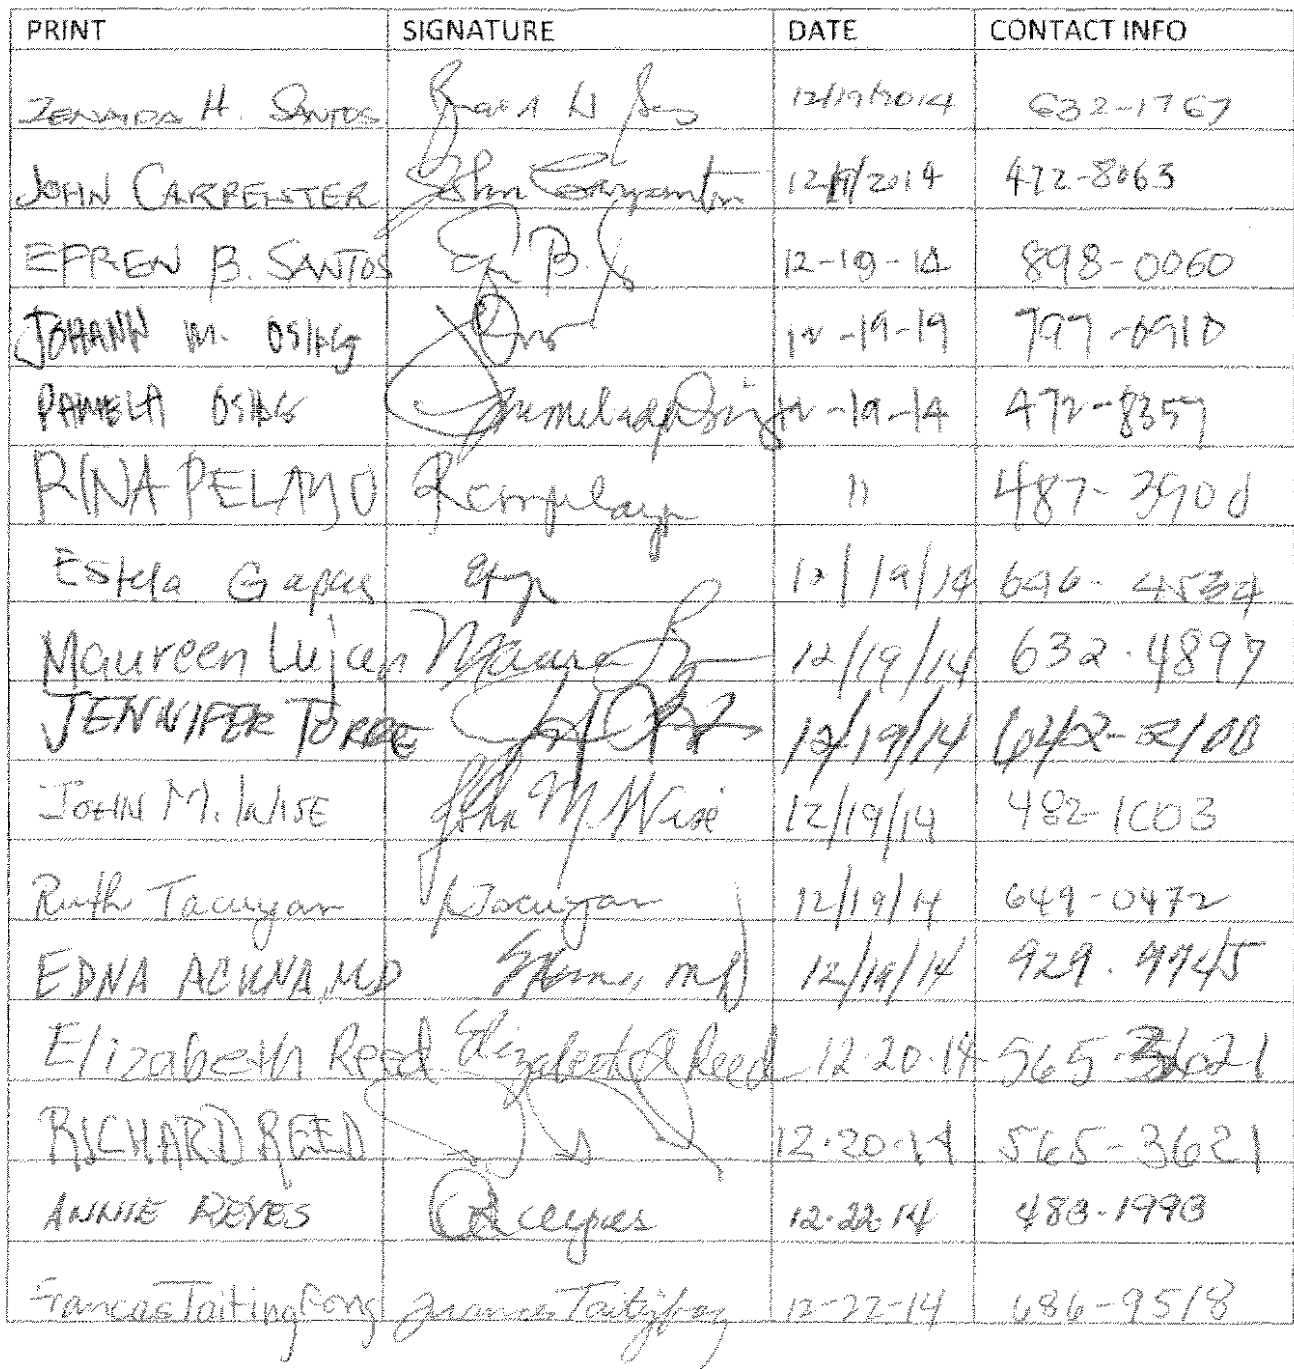 PRINT SIGNATURE DATE CONTACT INFO
ZENAIDA H. SANTOS 12/19/2014 632-1767
JOHN CARPENTER John Carpenter 12/19/2014 472-8063
EFREN B. SANTOS 12-19-14 898-0060
JOHANN M. OSIAS 12-19-19 797-0910
PAMELA OSIAS 12-19-14 472-8357
RINA PELAYO 11 487-3900
Estela Gapas 12/19/14 696-4534
Maureen Lujan 12/19/14 632.4897
JENNIFER TORRE 12/19/14 642-2100
JOHN M. WISE John M. Wise 12/19/14 482-1003
Ruth Tacuyan RTacuyan 12/19/14 649-0472
EDNA ACUNA, MD 12/19/14 929.9745
Elizabeth Reed Elizabeth J Reed 12.20.14 565-3621
RICHARD REED 12.20.14 565-3621
ANNIE REYES 12.22.14 483-1993
Francas Taitingfong Frances Taitingfong 12-22-14 686-9518